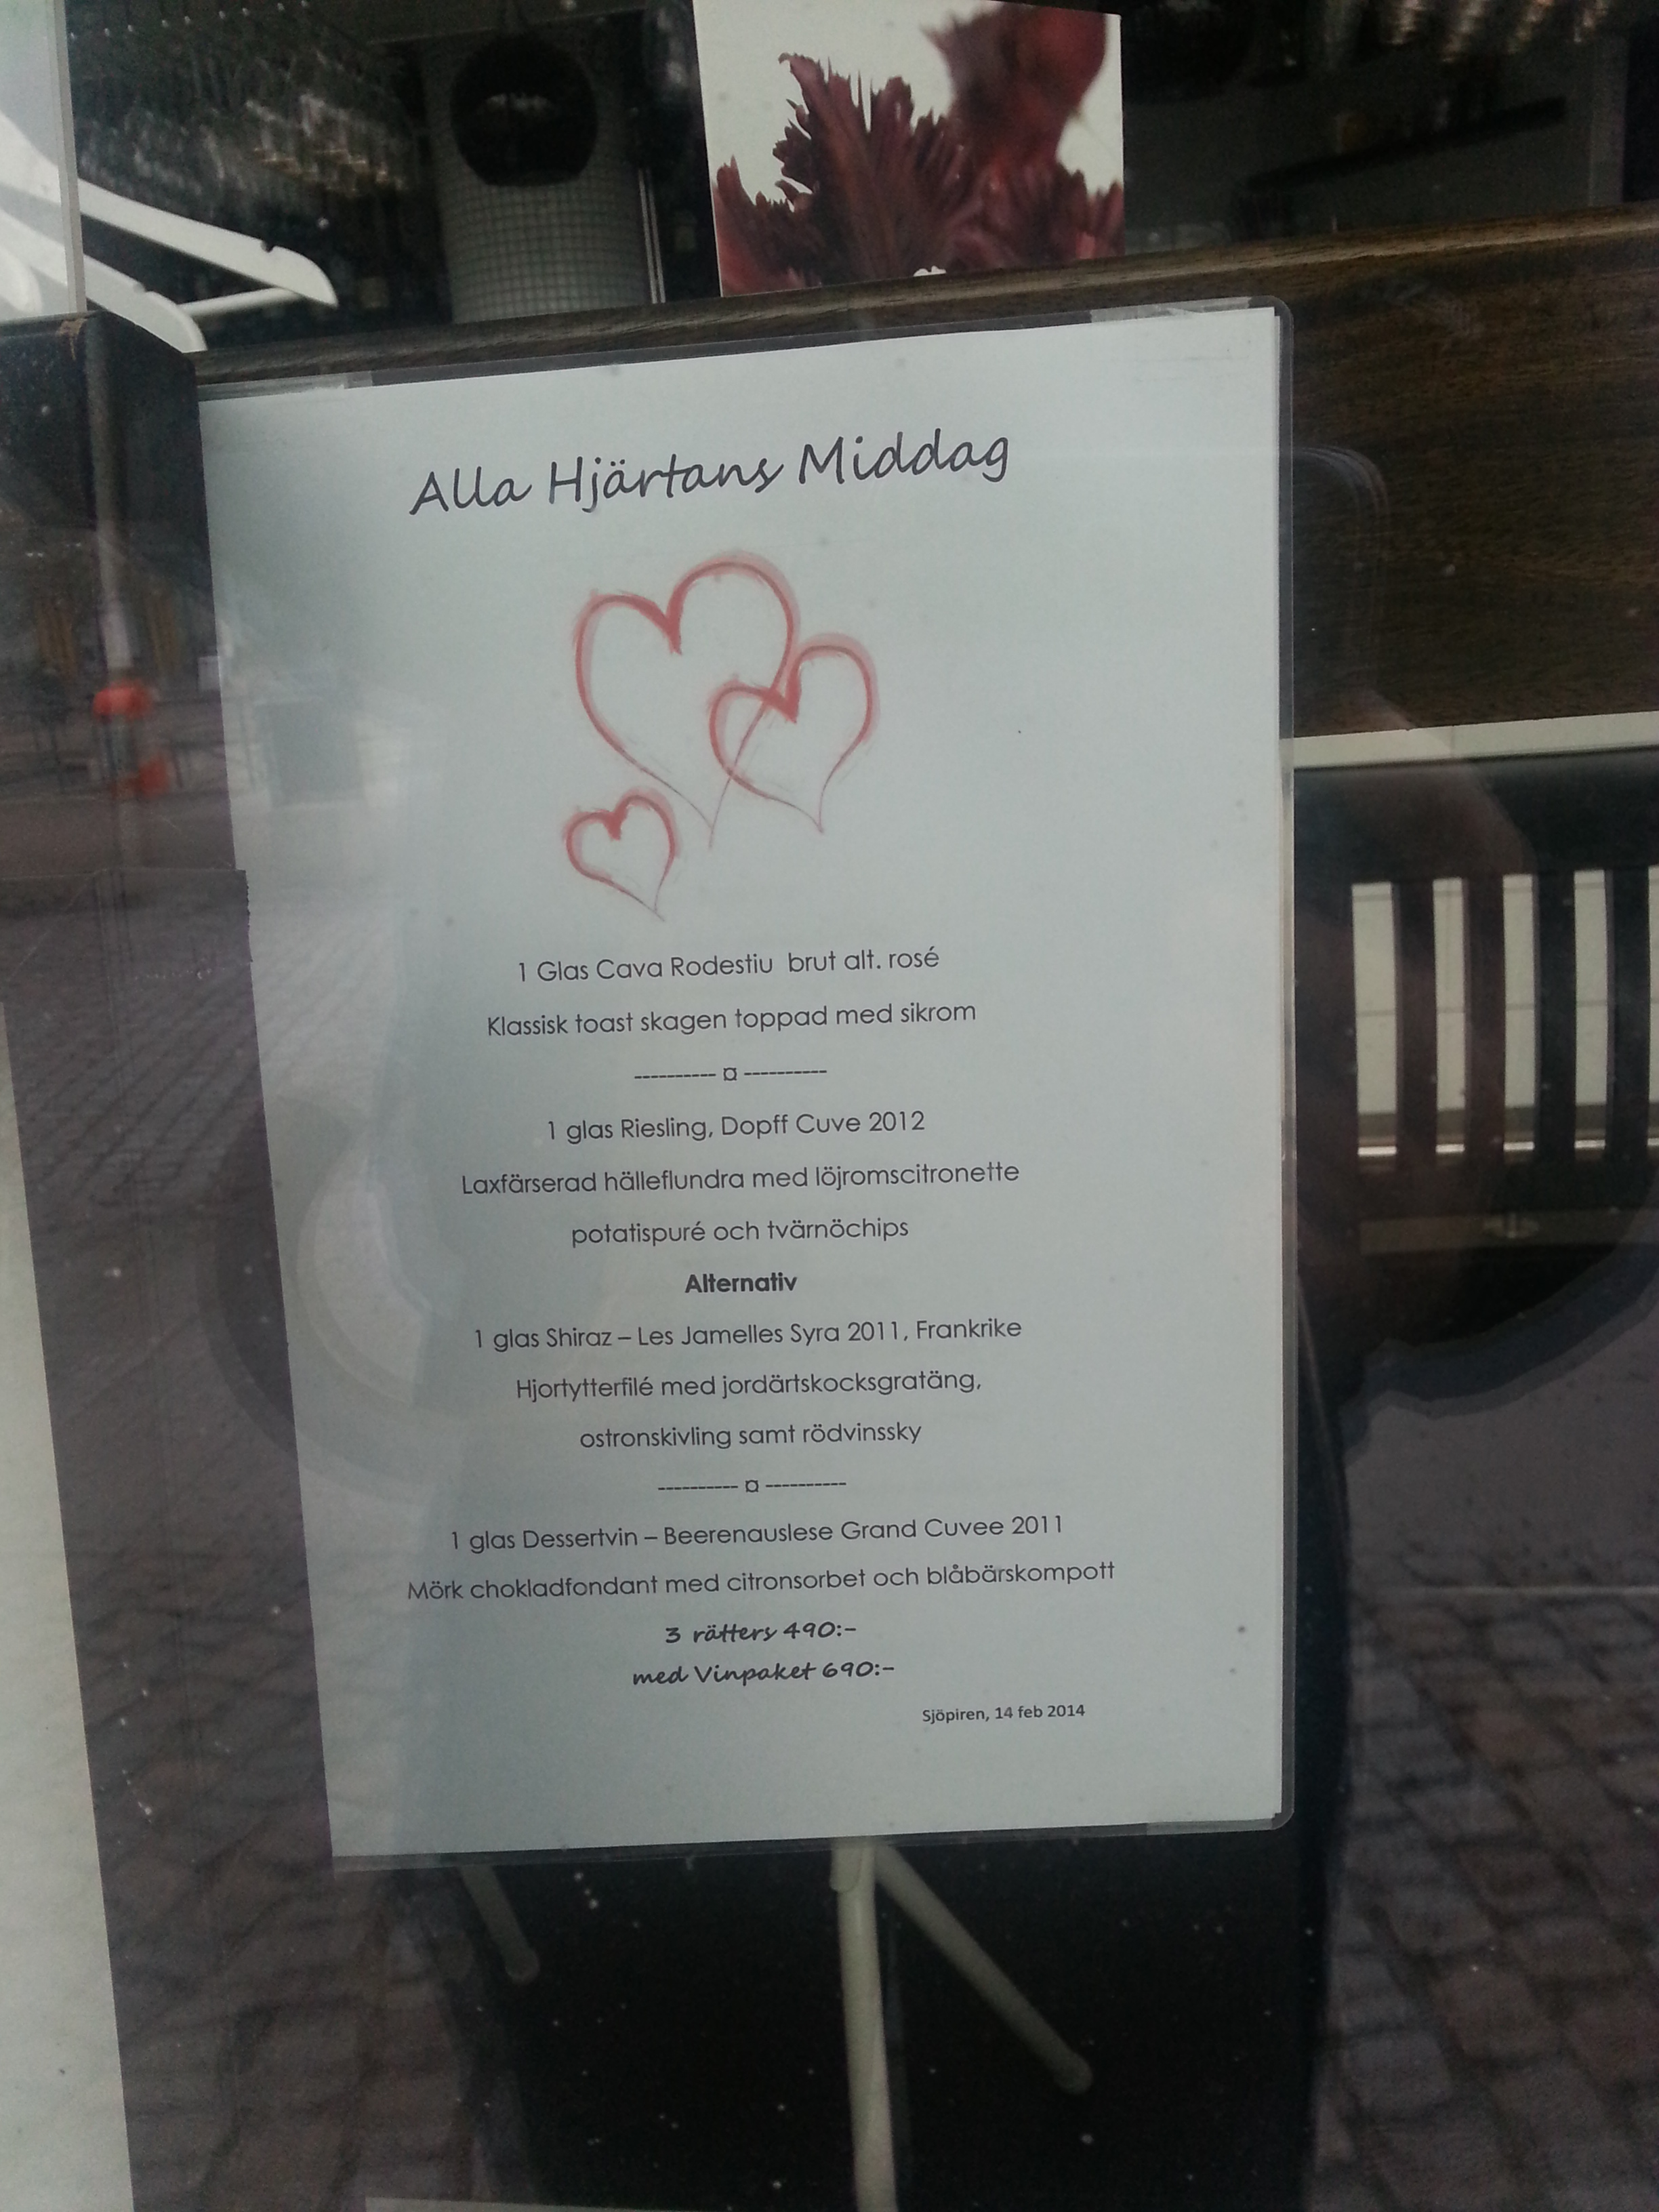 Alla Hjärtans Middag
1 Glas Cava Rodestiu brut alt. rosé
Klassisk toast skagen toppad med sikrom
---------- ¤ ----------
1 glas Riesling, Dopff Cuve 2012
Laxfärserad hälleflundra med löjromscitronette
potatispuré och tvärnöchips
Alternativ
1 glas Shiraz – Les Jamelles Syra 2011, Frankrike
Hjortytterfilé med jordärtskocksgratäng,
ostronskivling samt rödvinssky
---------- ¤ ----------
1 glas Dessertvin – Beerenauslese Grand Cuvee 2011
Mörk chokladfondant med citronsorbet och blåbärskompott
3 rätters 490:-
med Vinpaket 690:-
Sjöpiren, 14 feb 2014